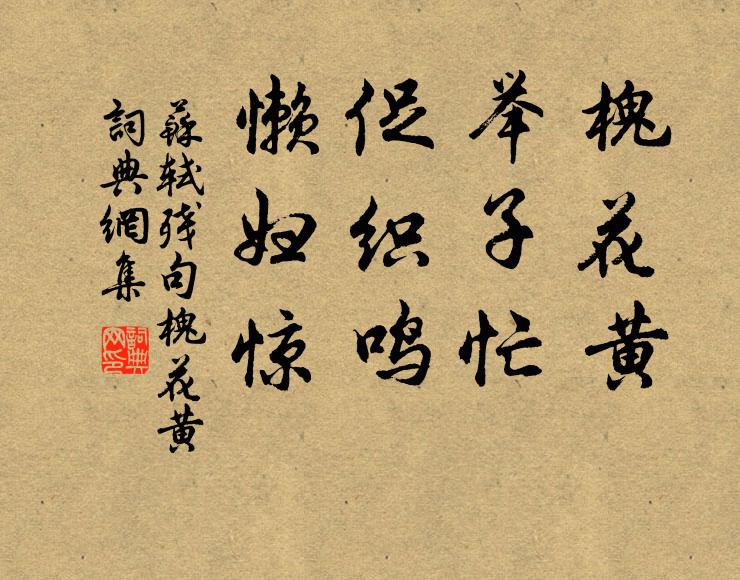 槐花黄
举子忙
促织鸣
懒妇惊
蘇轼殘句槐花黄
詞典網集
詞典网印